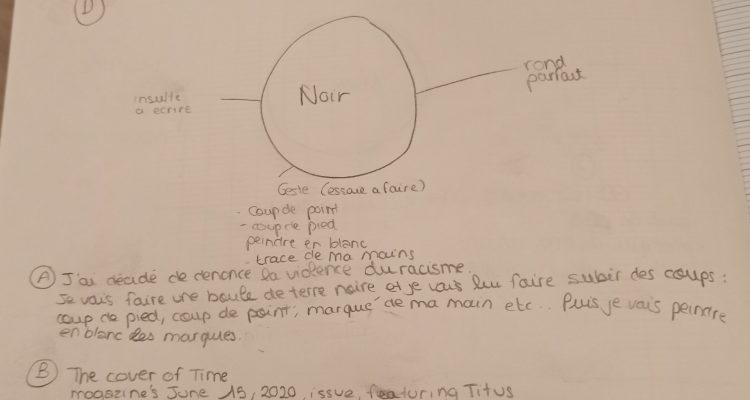 D
Noir
rond
parfait
insulte
a ecrire
Geste (essaie a faire)
- coup de point
- coup de pied
peindre en blanc
- trace de ma mains
A J'ai décidé de denonce la violence du racisme.
Je vais faire une boule de terre noire et je vais lui faire subir des coups :
coup de pied, coup de point, marque de ma main etc.. Puis je vais peindre
en blanc les marques.
B The cover of Time
magazine's June 15, 2020, issue, featuring Titus